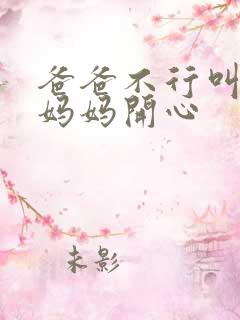 爸爸不行叫
妈妈開心
未影